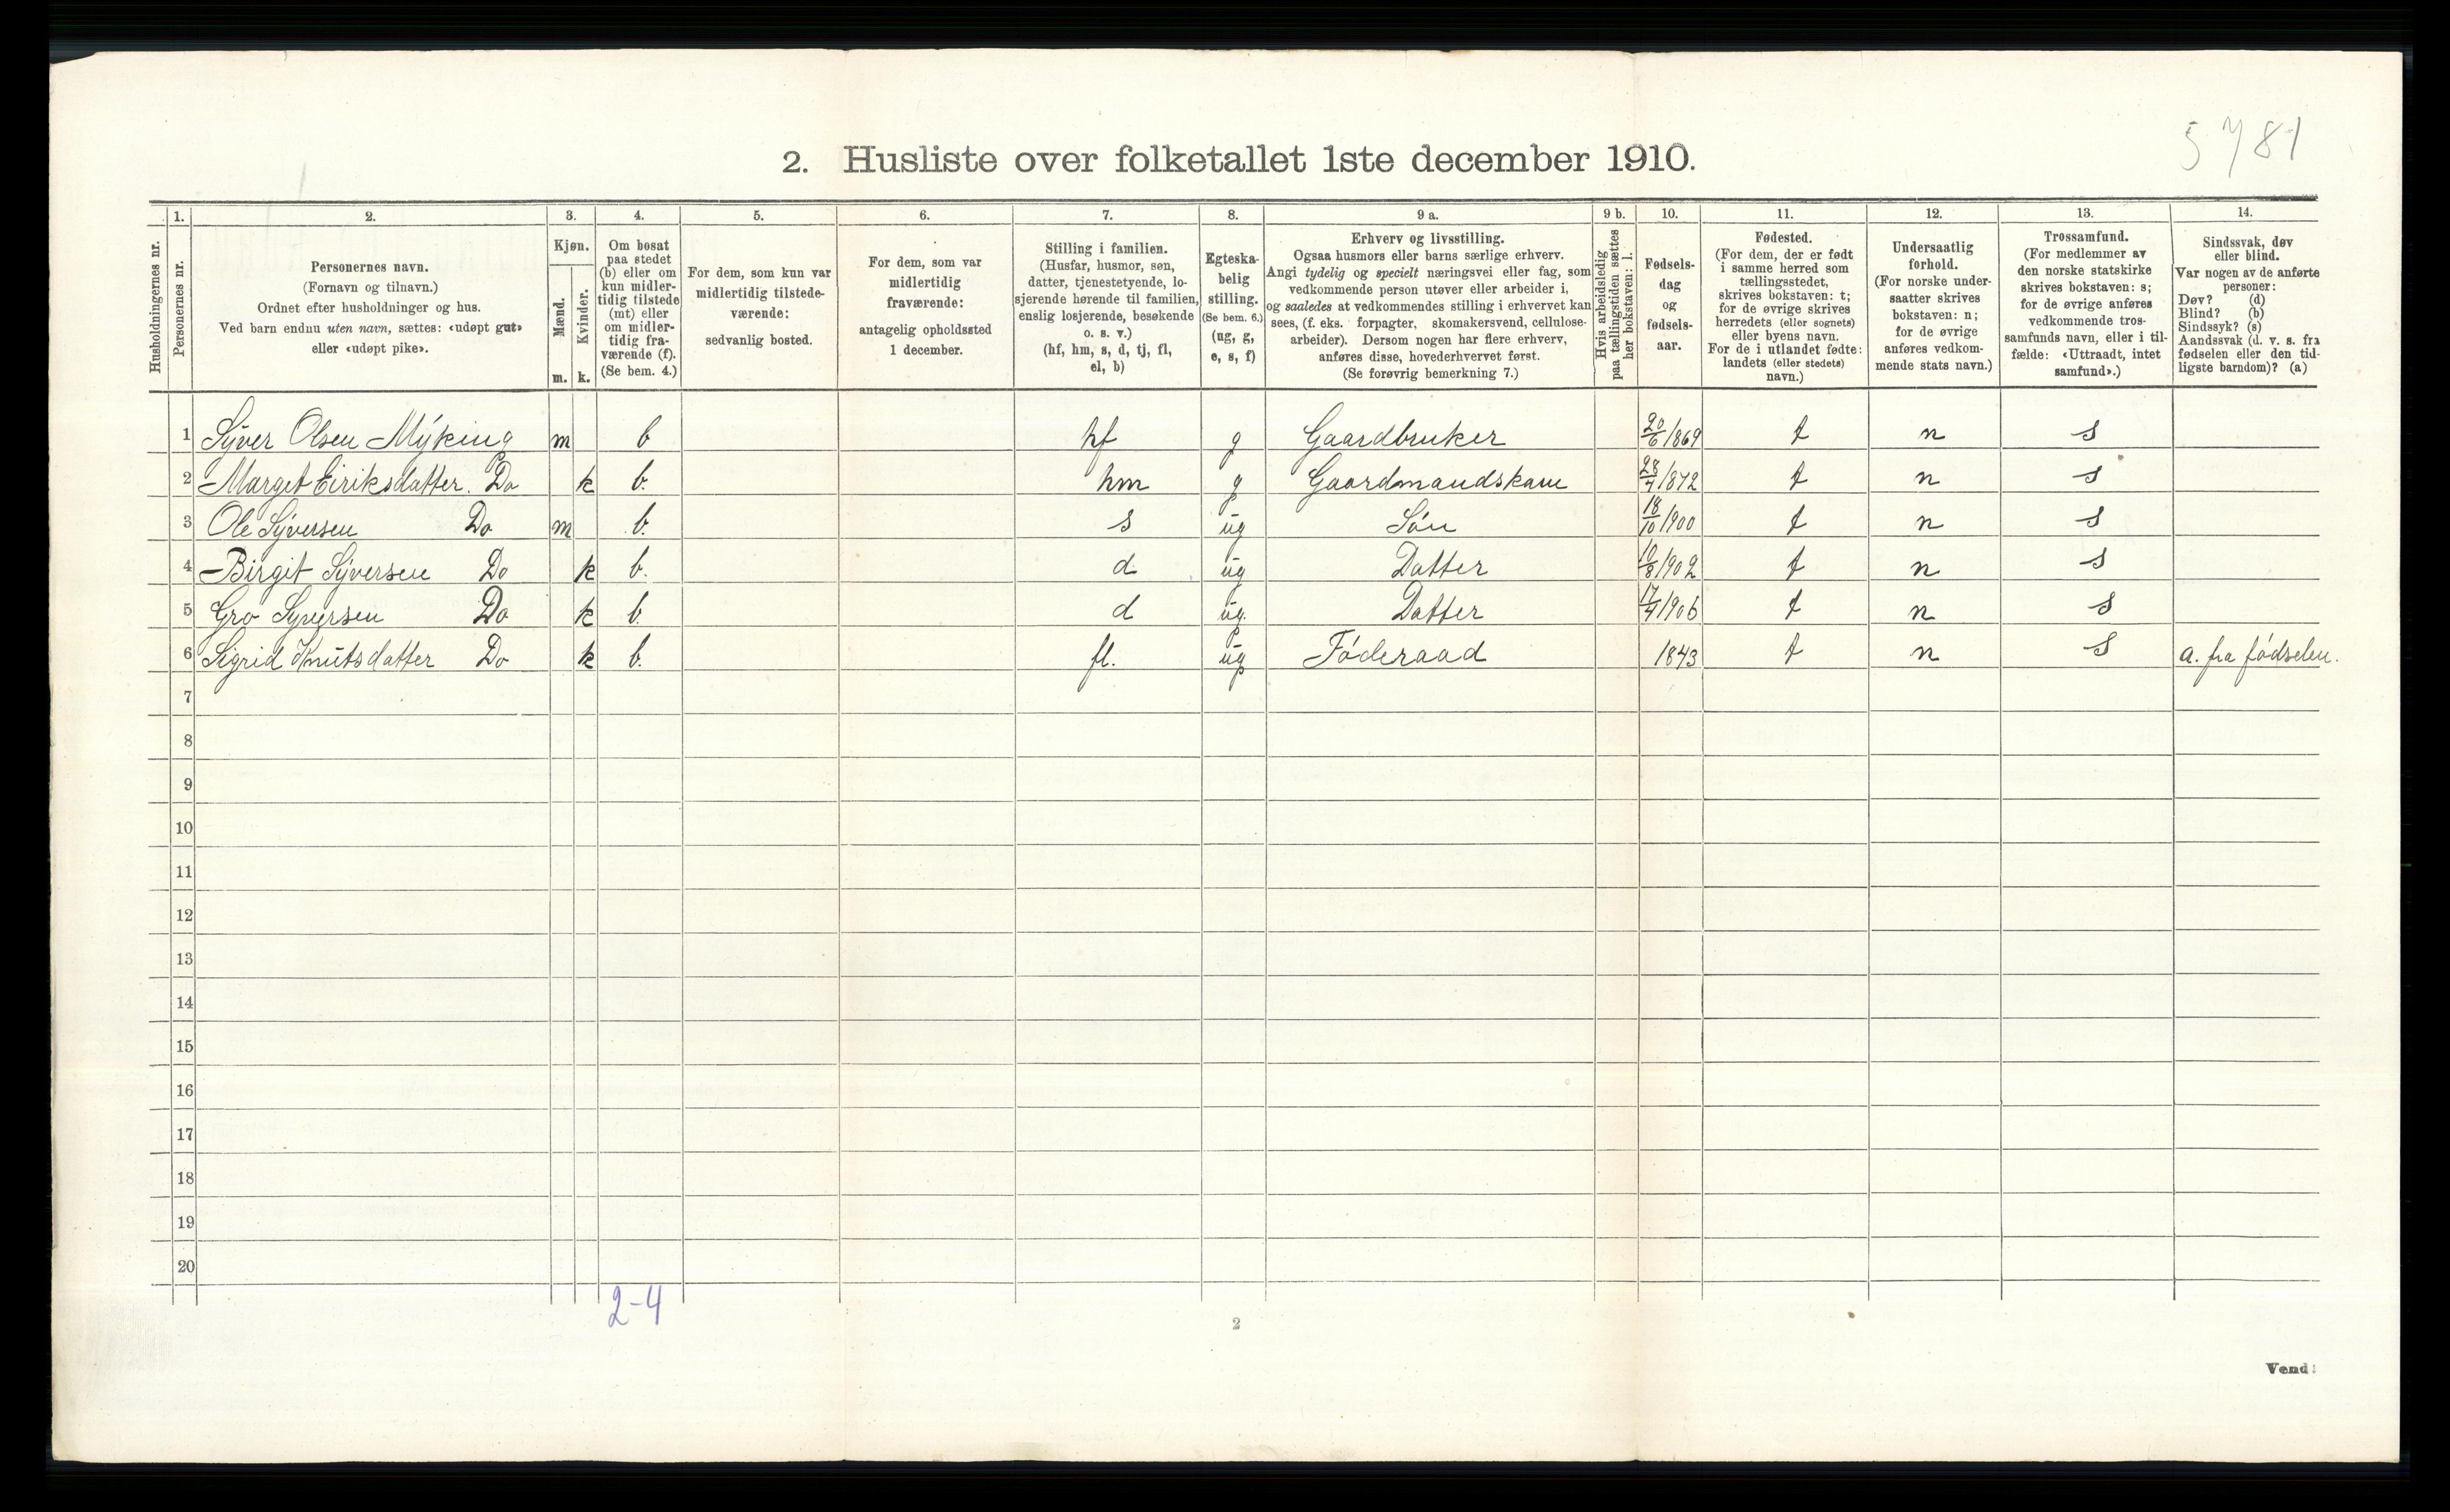 5781
2. Husliste over folketallet 1ste december 1910.
1. 2. 3. 4. 5. 6. 7. 8. 9 a. 9 b. 10. 11. 12. 13. 14.
Husholdningernes nr.
Personernes nr.
Personernes navn.
(Fornavn og tilnavn.)
Ordnet efter husholdninger og hus.
Ved barn endnu uten navn, sættes: «udøpt gut»
eller «udøpt pike».
Kjøn.
Mænd.
m.
Kvinder.
k.
Om bosat
paa stedet
(b) eller om
kun midler-
tidig tilstede
(mt) eller
om midler-
tidig fra-
værende (f).
(Se bem. 4.)
For dem, som kun var
midlertidig tilstede-
værende:
sedvanlig bosted.
For dem, som var
midlertidig
fraværende:
antagelig opholdssted
1 december.
Stilling i familien.
(Husfar, husmor, søn,
datter, tjenestetyende, lo-
sjerende hørende til familien,
enslig losjerende, besøkende
o. s. v.)
(hf, hm, s, d, tj, fl,
el, b)
Egteska-
belig
stilling.
(Se bem. 6.)
(ug, g,
e, s, f)
Erhverv og livsstilling.
Ogsaa husmors eller barns særlige erhverv.
Angi tydelig og specielt næringsvei eller fag, som
vedkommende person utøver eller arbeider i,
og saaledes at vedkommendes stilling i erhvervet kan
sees, (f. eks. forpagter, skomakersvend, cellulose-
arbeider). Dersom nogen har flere erhverv,
anføres disse, hovederhvervet først.
(Se forøvrig bemerkning 7.)
Hvis arbeidsledig
paa tællingstiden sættes
her bokstaven: l.
Fødsels-
dag
og
fødsels-
aar.
Fødested.
(For dem, der er født
i samme herred som
tællingsstedet,
skrives bokstaven: t;
for de øvrige skrives
herredets (eller sognets)
eller byens navn.
For de i utlandet fødte:
landets (eller stedets)
navn.)
Undersaatlig
forhold.
(For norske under-
saatter skrives
bokstaven: n;
for de øvrige
anføres vedkom-
mende stats navn.)
Trossamfund.
(For medlemmer av
den norske statskirke
skrives bokstaven: s;
for de øvrige anføres
vedkommende tros-
samfunds navn, eller i til-
fælde: «Uttraadt, intet
samfund».)
Sindssvak, døv
eller blind.
Var nogen av de anførte
personer:
Døv? (d)
Blind? (b)
Sindssyk? (s)
Aandssvak (d. v. s. fra
fødselen eller den tid-
ligste barndom)? (a)
1 Syver Olsen Myking m b hf g Gaardbruker 20/6 1869 t n s
2 Marget Eiriksdatter. Do k b. hm g Gaardmandskone 28/7 1872 t n s
3 Ole Syversen Do m b. s ug Søn 18/10 1900 t n s
4 Birgit Syversen Do k b. d ug Datter 10/8 1902 t n s
5 Gro Syversen Do k b. d ug. Datter 17/4 1906 t n s
6 Sigrid Knutsdatter Do k b. fl. ug Føderaad 1843 t n s a. fra fødselen.
7
8
9
10
11
12
13
14
15
16
17
18
19
20
2-4
2
Vend!